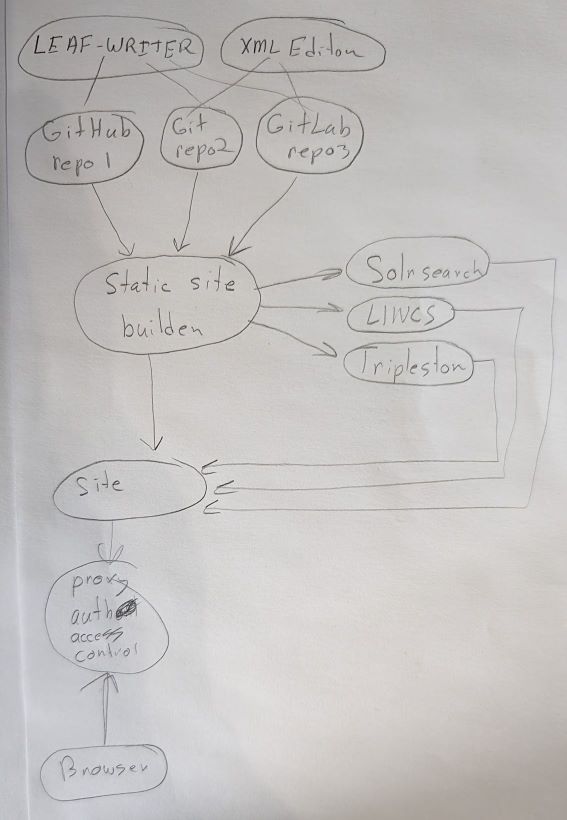 LEAF-WRITER
XML Editor
GitHub
repo 1
Git
repo2
GitLab
repo3
Static site
builder
Solr search
LINCS
Triplestor
Site
proxy
auth
access
control
Browser